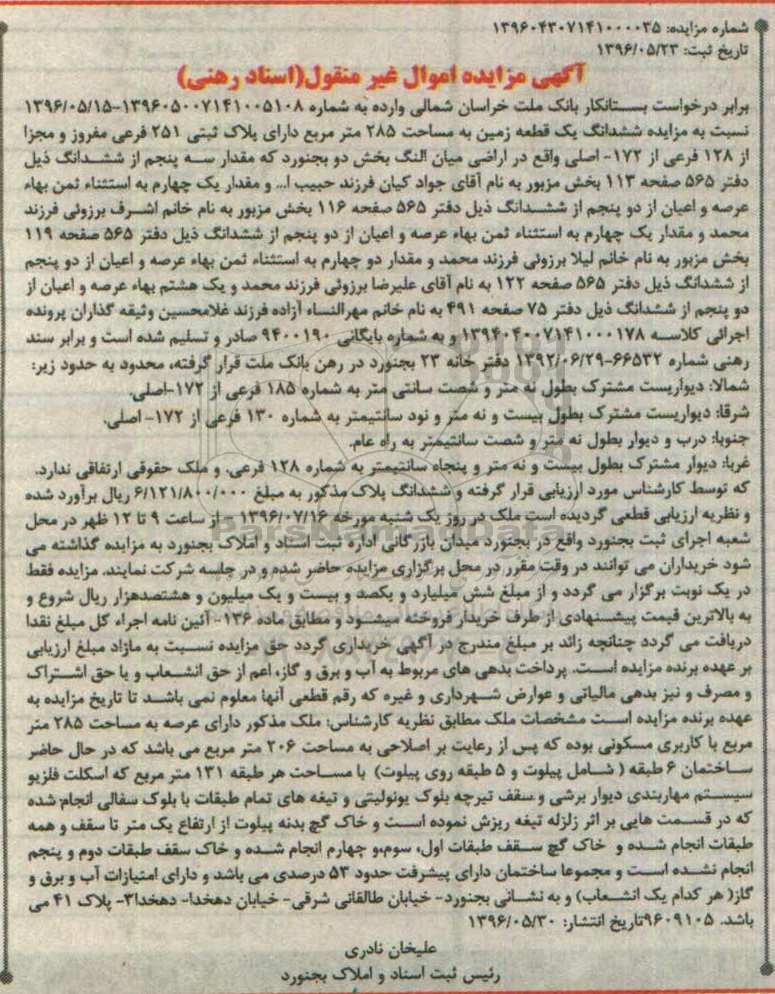 شماره مزایده: ۱۳۹۶۰۴۳۰۷۱۴۱۰۰۰۰۳۵
تاریخ ثبت: ۱۳۹۶/۰۵/۲۳
آگهی مزایده اموال غیر منقول(اسناد رهنی)
برابر درخواست بستانکار بانک ملت خراسان شمالی وارده به شماره ۱۳۹۶۰۵۰۰۷۱۴۱۰۰۵۱۰۸-۱۳۹۶/۰۵/۱۵
نسبت به مزایده ششدانگ یک قطعه زمین به مساحت ۲۸۵ متر مربع دارای پلاک ثبتی ۲۵۱ فرعی مفروز و مجزا
از ۱۲۸ فرعی از ۱۷۲- اصلی واقع در اراضی میان النگ بخش دو بجنورد که مقدار سه پنجم از ششدانگ ذیل
دفتر ۵۶۵ صفحه ۱۱۳ بخش مزبور به نام آقای جواد کیان فرزند حبیب ا... و مقدار یک چهارم به استثناء ثمن بهاء
عرصه و اعیان از دو پنجم از ششدانگ ذیل دفتر ۵۶۵ صفحه ۱۱۶ بخش مزبور به نام خانم اشرف برزوئی فرزند
محمد و مقدار یک چهارم به استثناء ثمن بهاء عرصه و اعیان از دو پنجم از ششدانگ ذیل دفتر ۵۶۵ صفحه ۱۱۹
بخش مزبور به نام خانم لیلا برزوئی فرزند محمد و مقدار دو چهارم به استثناء ثمن بهاء عرصه و اعیان از دو پنجم
از ششدانگ ذیل دفتر ۵۶۵ صفحه ۱۲۲ به نام آقای علیرضا برزوئی فرزند محمد و یک هشتم بهاء عرصه و اعیان از
دو پنجم از ششدانگ ذیل دفتر ۷۵ صفحه ۴۹۱ به نام خانم مهرالنساء آزاده فرزند غلامحسین وثیقه گذاران پرونده
اجرائی کلاسه ۱۳۹۴۰۴۰۰۷۱۴۱۰۰۰۱۷۸ و به شماره بایگانی ۹۴۰۰۱۹۰ صادر و تسلیم شده است و برابر سند
رهنی شماره ۶۶۵۳۲-۱۳۹۲/۰۶/۲۹ دفتر خانه ۲۳ بجنورد در رهن بانک ملت قرار گرفته، محدود به حدود زیر:
شمالا: دیواریست مشترک بطول نه متر و شصت سانتی متر به شماره ۱۸۵ فرعی از ۱۷۲-اصلی.
شرقا: دیواریست مشترک بطول بیست و نه متر و نود سانتیمتر به شماره ۱۳۰ فرعی از ۱۷۲- اصلی.
جنوبا: درب و دیوار بطول نه متر و شصت سانتیمتر به راه عام.
غربا: دیوار مشترک بطول بیست و نه متر و پنجاه سانتیمتر به شماره ۱۲۸ فرعی. و ملک حقوقی ارتفاقی ندارد.
که توسط کارشناس مورد ارزیابی قرار گرفته و ششدانگ پلاک مذکور به مبلغ ۶/۱۲۱/۸۰۰/۰۰۰ ریال برآورد شده
و نظریه ارزیابی قطعی گردیده است ملک در روز یک شنبه مورخه ۱۳۹۶/۰۷/۱۶ - از ساعت ۹ تا ۱۲ ظهر در محل
شعبه اجرای ثبت بجنورد واقع در بجنورد میدان بازرگانی اداره ثبت اسناد و املاک بجنورد به مزایده گذاشته می
شود خریداران می توانند در وقت مقرر در محل برگزاری مزایده حاضر شده و در جلسه شرکت نمایند. مزایده فقط
در یک نوبت برگزار می گردد و از مبلغ شش میلیارد و یکصد و بیست و یک میلیون و هشتصدهزار ریال شروع و
به بالاترین قیمت پیشنهادی از طرف خریدار فروخته میشود و مطابق ماده ۱۳۶- آئین نامه اجراء کل مبلغ نقدا
دریافت می گردد چنانچه زائد بر مبلغ مندرج در آگهی خریداری گردد حق مزایده نسبت به مازاد مبلغ ارزیابی
بر عهده برنده مزایده است. پرداخت بدهی های مربوط به آب و برق و گاز، اعم از حق انشعاب و یا حق اشتراک
و مصرف و نیز بدهی مالیاتی و عوارض شهرداری و غیره که رقم قطعی آنها معلوم نمی باشد تا تاریخ مزایده به
عهده برنده مزایده است مشخصات ملک مطابق نظریه کارشناس: ملک مذکور دارای عرصه به مساحت ۲۸۵ متر
مربع با کاربری مسکونی بوده که پس از رعایت بر اصلاحی به مساحت ۲۰۶ متر مربع می باشد که در حال حاضر
ساختمان ۶ طبقه ( شامل پیلوت و ۵ طبقه روی پیلوت) با مساحت هر طبقه ۱۳۱ متر مربع که اسکلت فلزیو
سیستم مهاربندی دیوار برشی و سقف تیرچه بلوک یونولیتی و تیغه های تمام طبقات با بلوک سفالی انجام شده
که در قسمت هایی بر اثر زلزله تیغه ریزش نموده است و خاک گچ بدنه پیلوت از ارتفاع یک متر تا سقف و همه
طبقات انجام شده و خاک گچ سقف طبقات اول، سوم،و چهارم انجام شده و خاک سقف طبقات دوم و پنجم
انجام نشده است و مجموعا ساختمان دارای پیشرفت حدود ۵۳ درصدی می باشد و دارای امتیازات آب و برق و
گاز( هر کدام یک انشعاب) و به نشانی بجنورد- خیابان طالقانی شرقی- خیابان دهخدا- دهخدا۳- پلاک ۴۱ می
باشد. ۹۶۰۹۱۰۵تاریخ انتشار: ۱۳۹۶/۰۵/۳۰
علیخان نادری
رئیس ثبت اسناد و املاک بجنورد